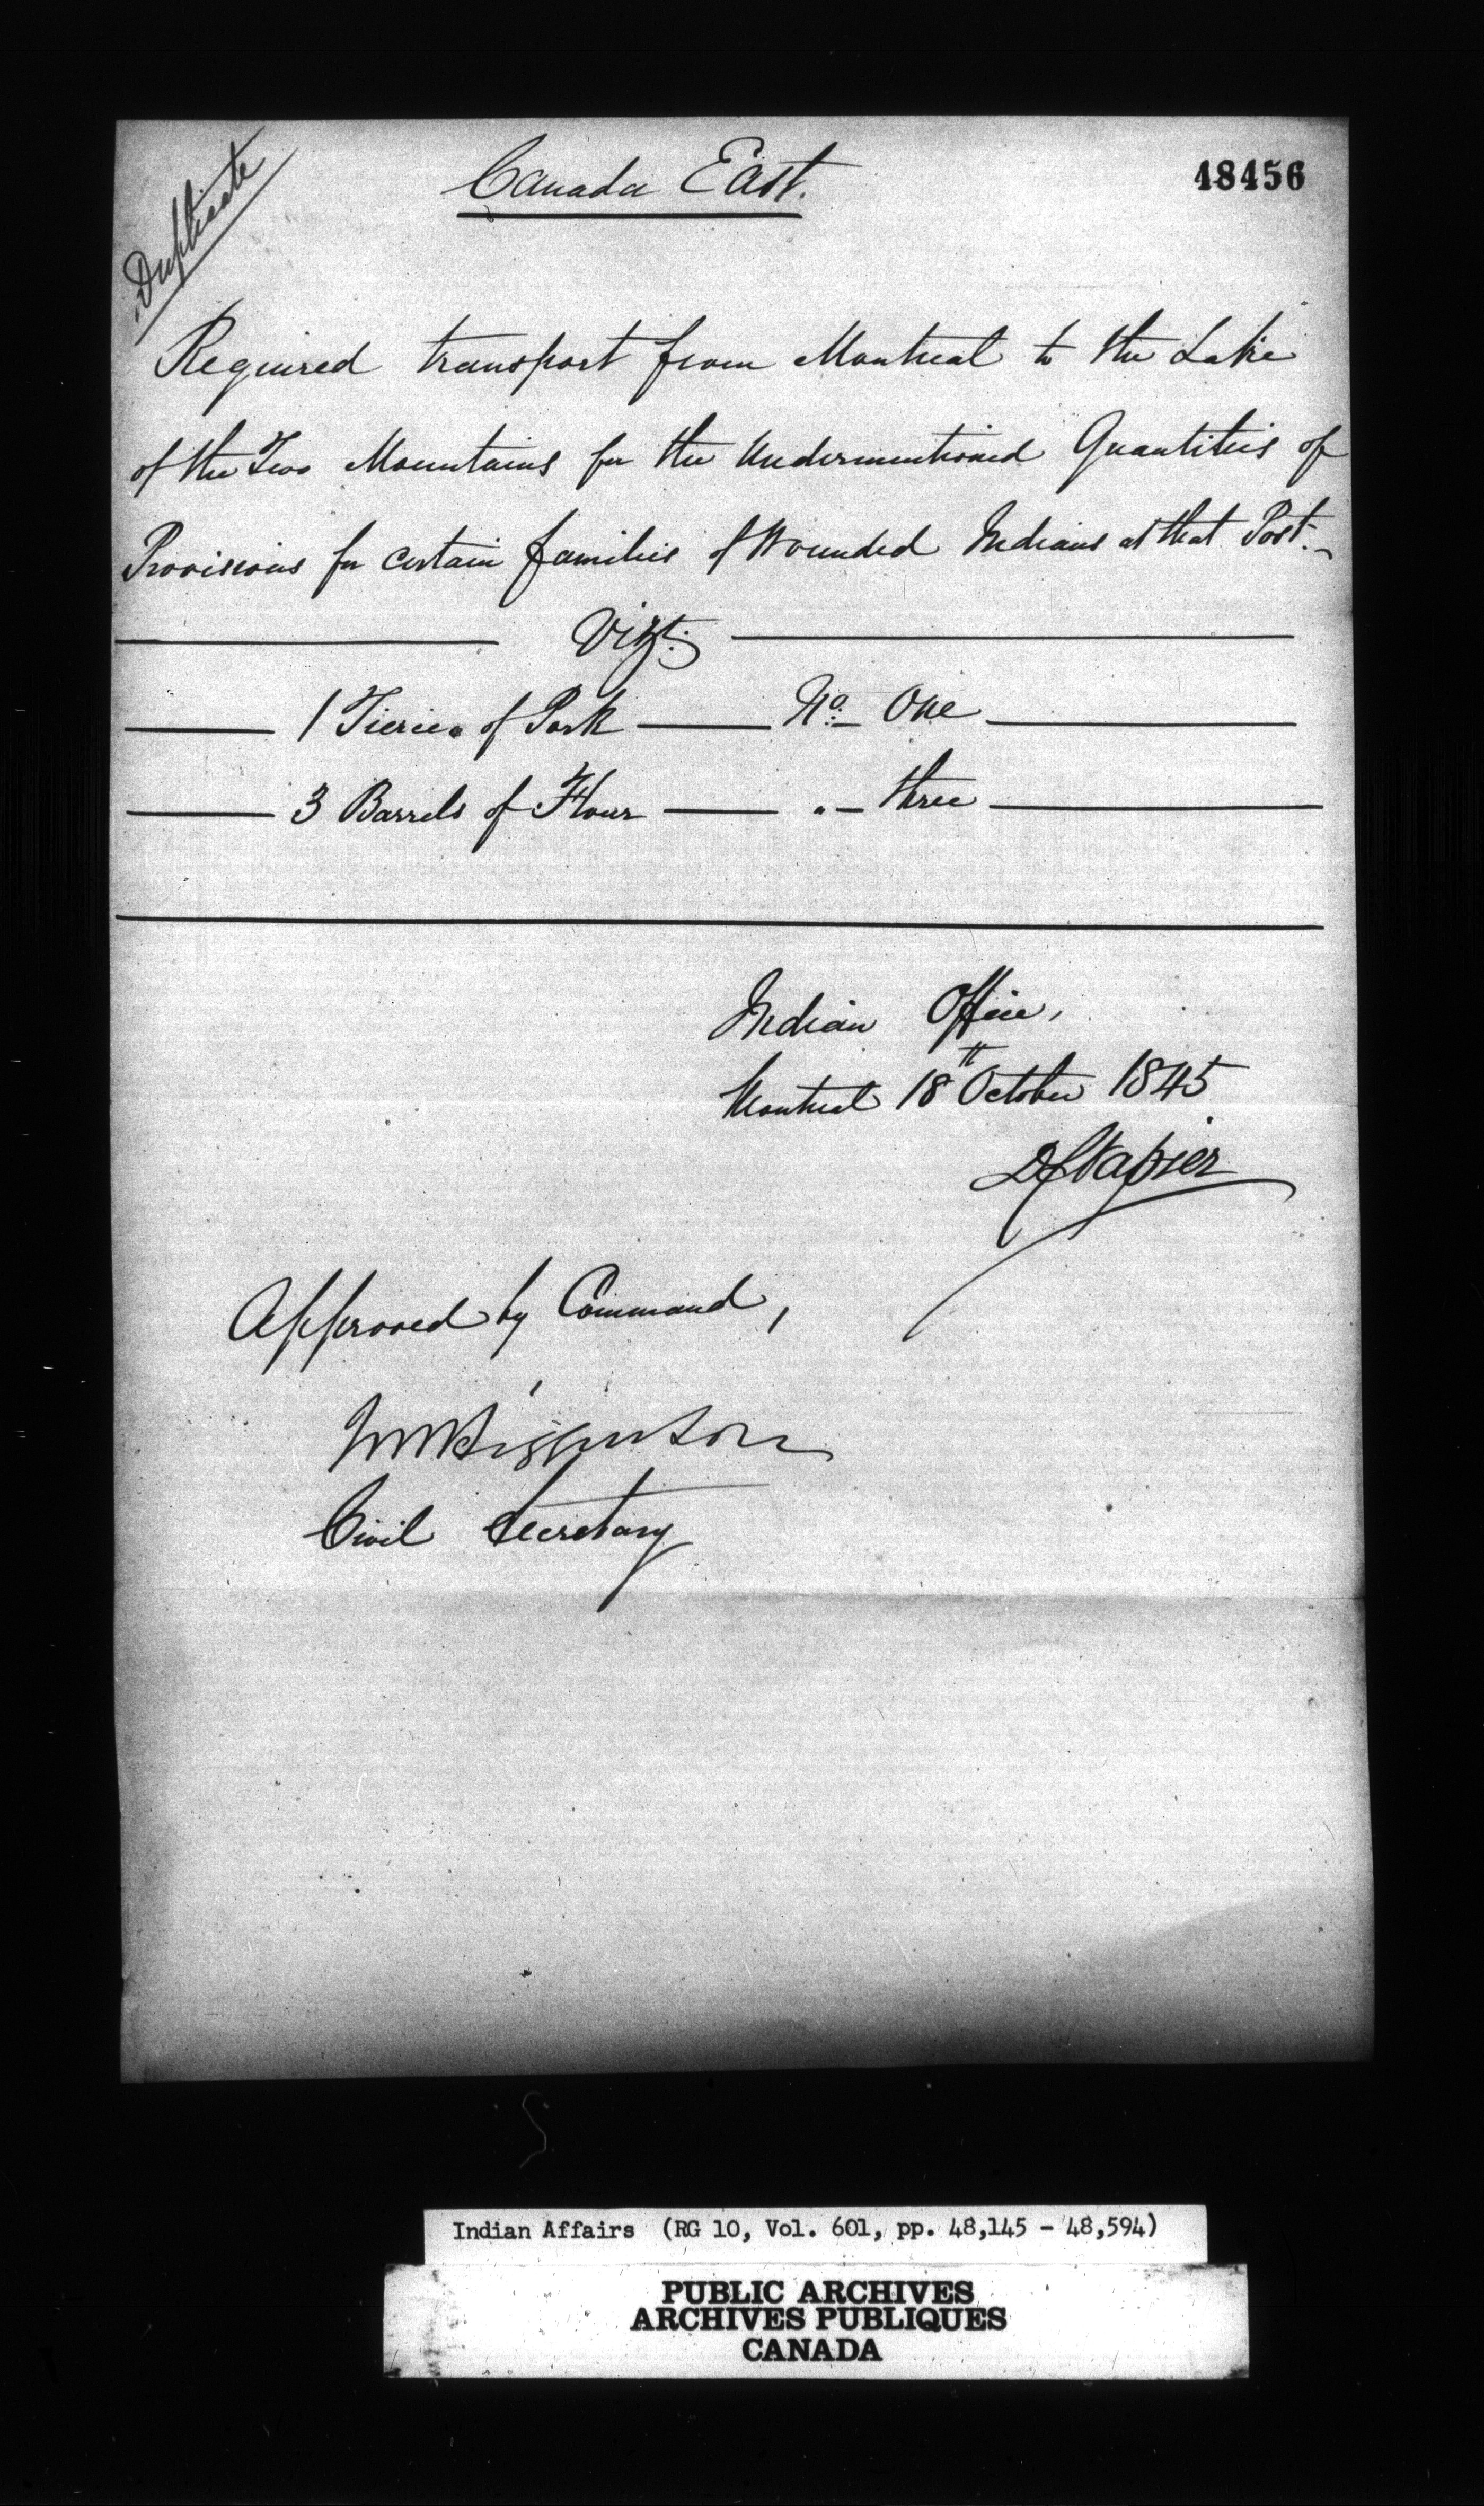 Duplicate
Canada East.
48456
Required transport from Montreal to the Lake
of the Two Mountains for the Undermentioned Quantities of
Provisions for certain families of Wounded Indians at that Post.
Vizt.
1 Tierce of Pork No. One
3 Barrels of Flour " three
Indian Office,
Montreal 18th October 1845
DCNapier
Approved by Command,
JMHigginson
Civil Secretary
Indian Affairs (RG 10, Vol. 601, pp. 48,145 - 48,594)
PUBLIC ARCHIVES
ARCHIVES PUBLIQUES
CANADA